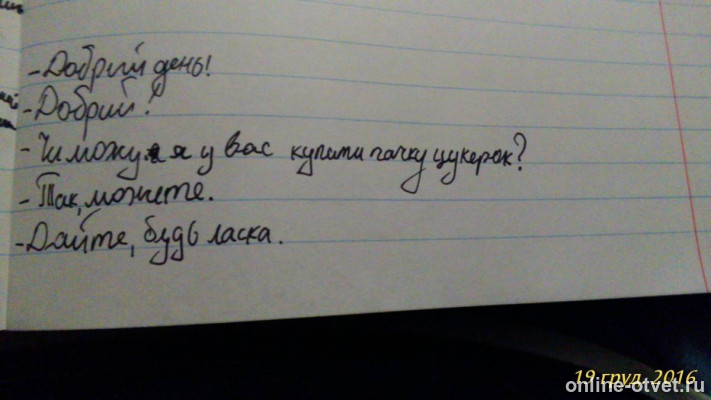 - Добрий день!
- Добрий!
- Чи можу я у вас купити пачку цукерок?
- Так, можете.
- Дайте, будь ласка.
19 груд. 2016
online-otvet.ru